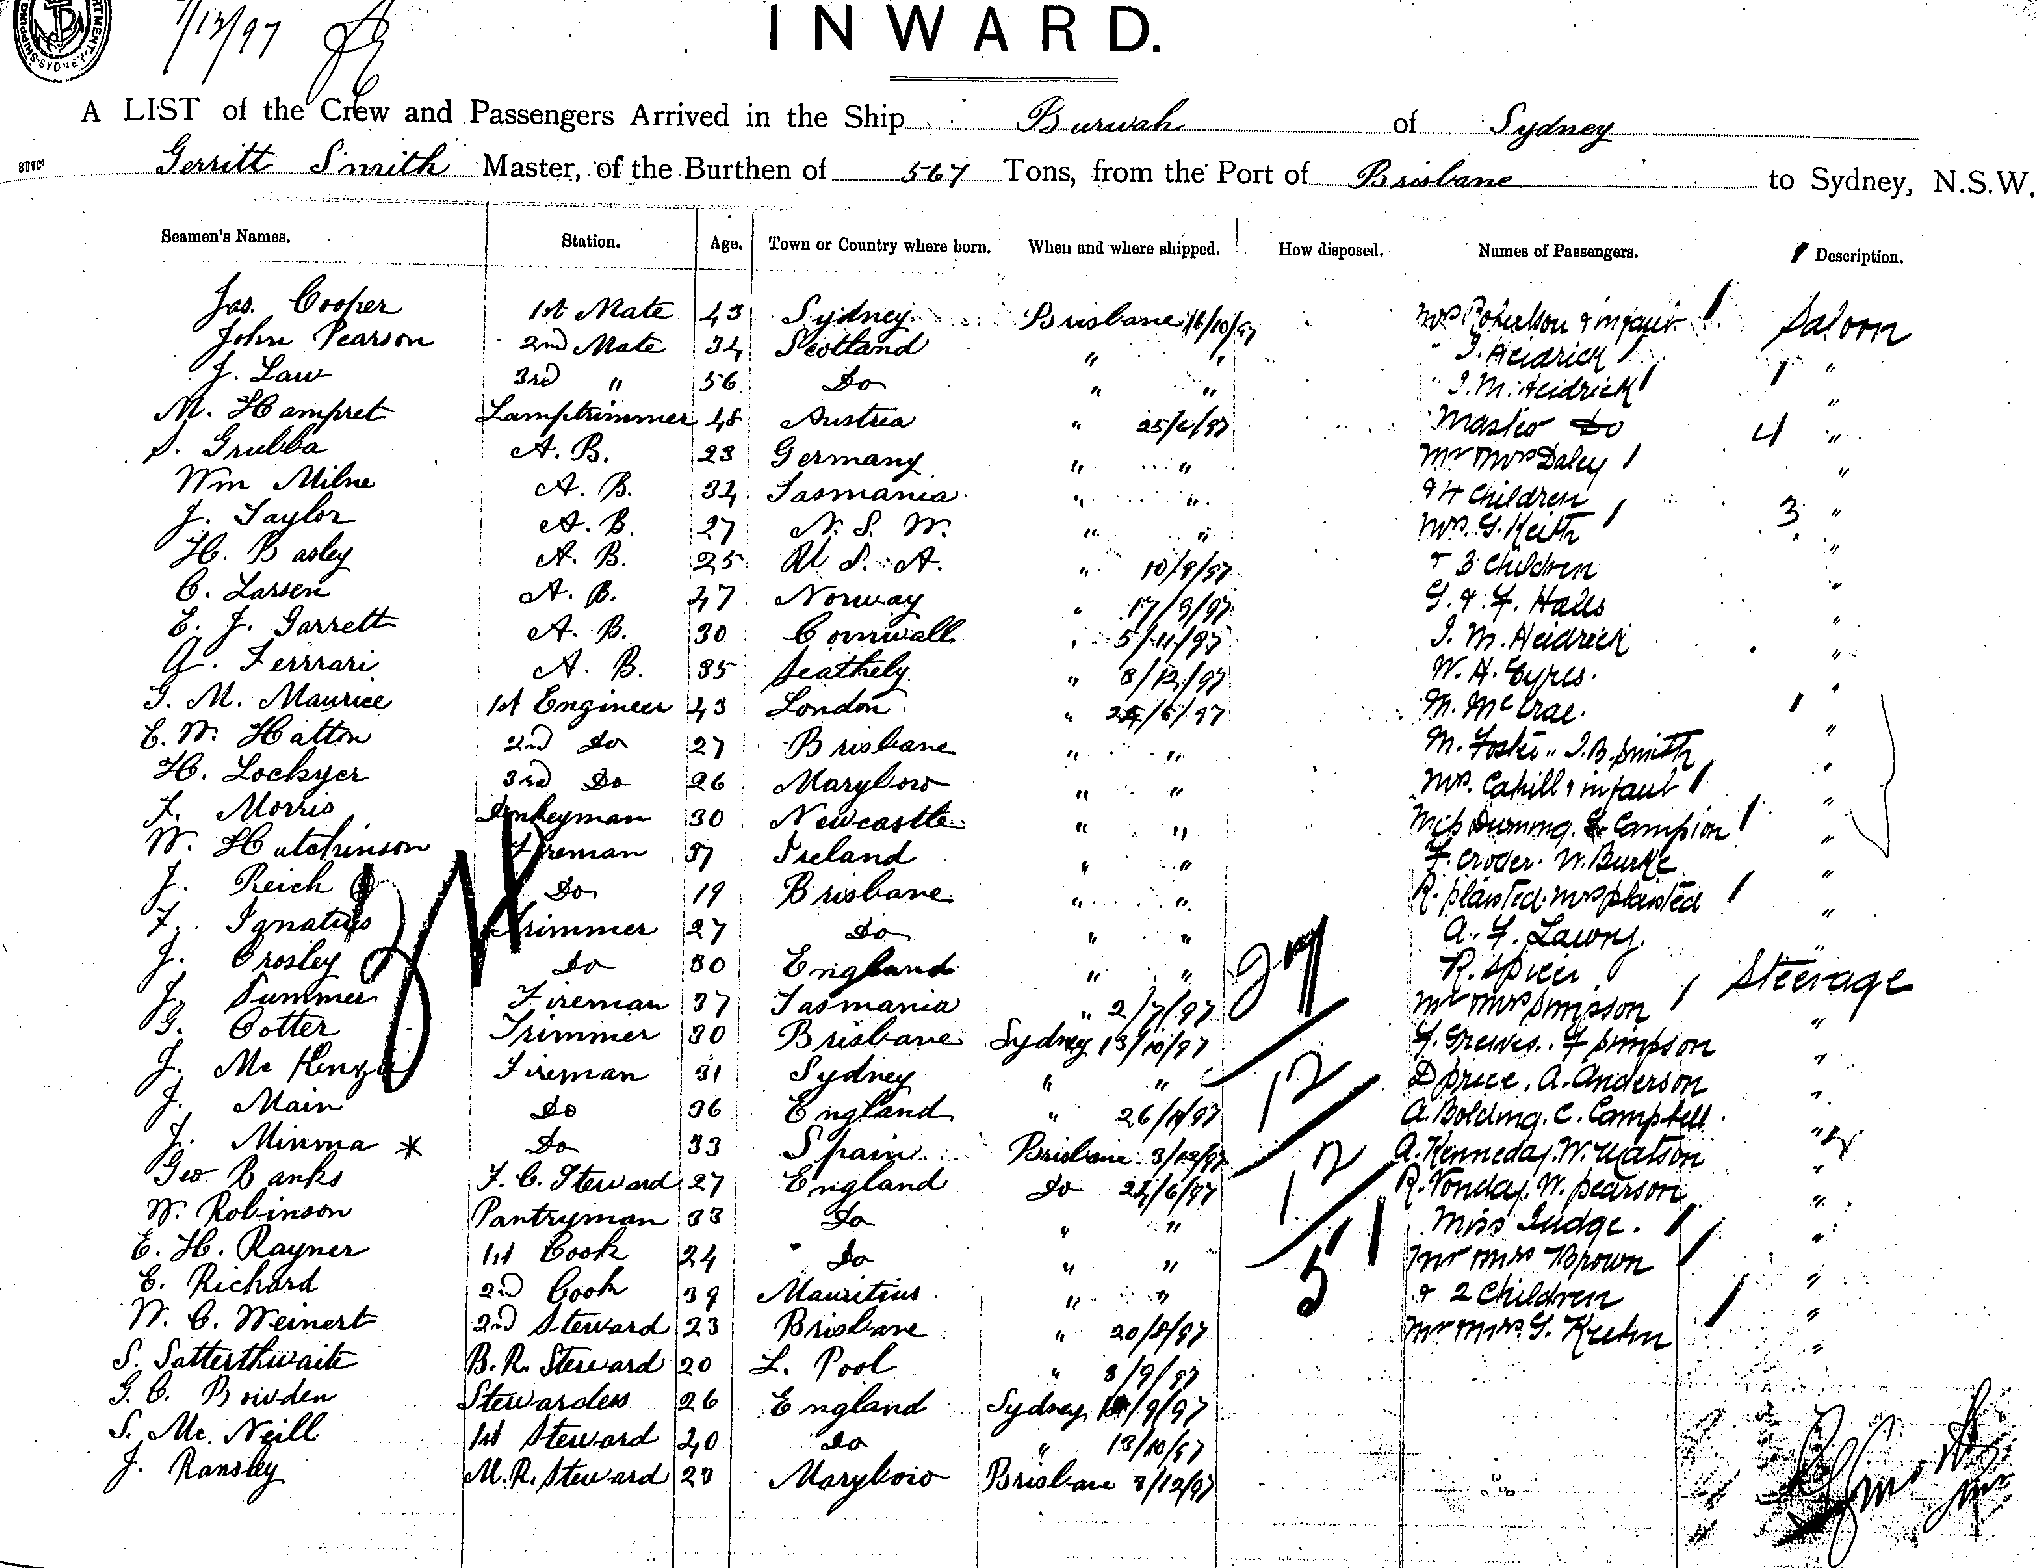 7/12/97
INWARD.
A LIST of the Crew and Passengers Arrived in the Ship Burwah of Sydney
Gerritt Smith Master, of the Burthen of 567 Tons, from the Port of Brisbane to Sydney, N.S.W.
Seamen's Names. Station. Age. Town or Country where born. When and where shipped. How disposed. Names of Passengers. Description.
Jas. Cooper 1st Mate 43 Sydney Brisbane 16/10/97 Mrs Robertson & infant Saloon
John Pearson 2nd Mate 34 Scotland " " J. Heidrick "
J. Law 3rd " 56 Do " " J. M. Heidrick 1 "
M. Hampret Lamptrimmer 48 Austria " 25/6/97 Master Do 4 "
S. Grubba A. B. 23 Germany " " Mr Mrs Daley "
Wm Milne A. B. 34 Tasmania " " & 4 Children "
J. Taylor A. B. 27 N. S. W. " " Mrs. G. Keith 3 "
H. Basley A. B. 25 U. S. A. " 10/9/97 & 3 Children "
C. Larsen A. B. 47 Norway " 17/9/97 G. & F. Halls "
E. J. Garrett A. B. 30 Cornwall " 5/11/97 J. M. Heidrick "
G. Ferrrari A. B. 35 " 3/12/97 W. H. Eyres. "
G. M. Maurice 1st Engineer 43 London " 24/6/97 M. McCrae. "
E. W. Hatton 2nd Do 27 Brisbane " " M. Foster " J. B. Smith "
H. Lockyer 3rd Do 26 Marybow " " Mrs. Cahill & infant "
F. Morris Donkeyman 30 Newcastle " " Miss Campion "
W. Hutchinson Fireman 37 Ireland " " W. Burke "
J. Reich Do 19 Brisbane " " R. Plaisted. Mrs Plaisted "
F. Ignatius Trimmer 27 Do " " A. F. "
J. Crosley Do 30 England " " 27 R. Spicer "
J. Summer Fireman 37 Tasmania " 2/7/97 Mr Mrs Simpson Steerage
G. Cotter Trimmer 30 Brisbane Sydney 13/10/97 F. Greeves. F Simpson "
J. McKenzie Fireman 31 Sydney " " 12 D Price. A. Anderson "
J. Main Do 36 England " 26/11/97 A. Bolding. C. Campbell. "
J. Minma * Do 33 Spain Brisbane 3/12/97 12 A. Kenneday. W. Watson "
Geo Banks F. C. Steward 27 England Do 24/6/97 R. W. Pearson "
W. Robinson Pantryman 33 Do " " Miss Judge. "
E. H. Rayner 1st Cook 24 Do " " 51 Mr Mrs Brown "
E. Richard 2nd Cook 39 Mauritius " " & 2 Children "
W. C. Weinert 2nd Steward 23 Brisbane " 20/8/97 Mr Mrs. G. Krehn "
S. Satterthwaite B. R. Steward 20 L. Pool " 3/9/97 "
G. C. Bowden Stewardess 26 England Sydney /9/97
S. McNeill 1st Steward 40 Do " 13/10/97
J. Ransley M. R. Steward 23 Maryboro Brisbane 3/12/97